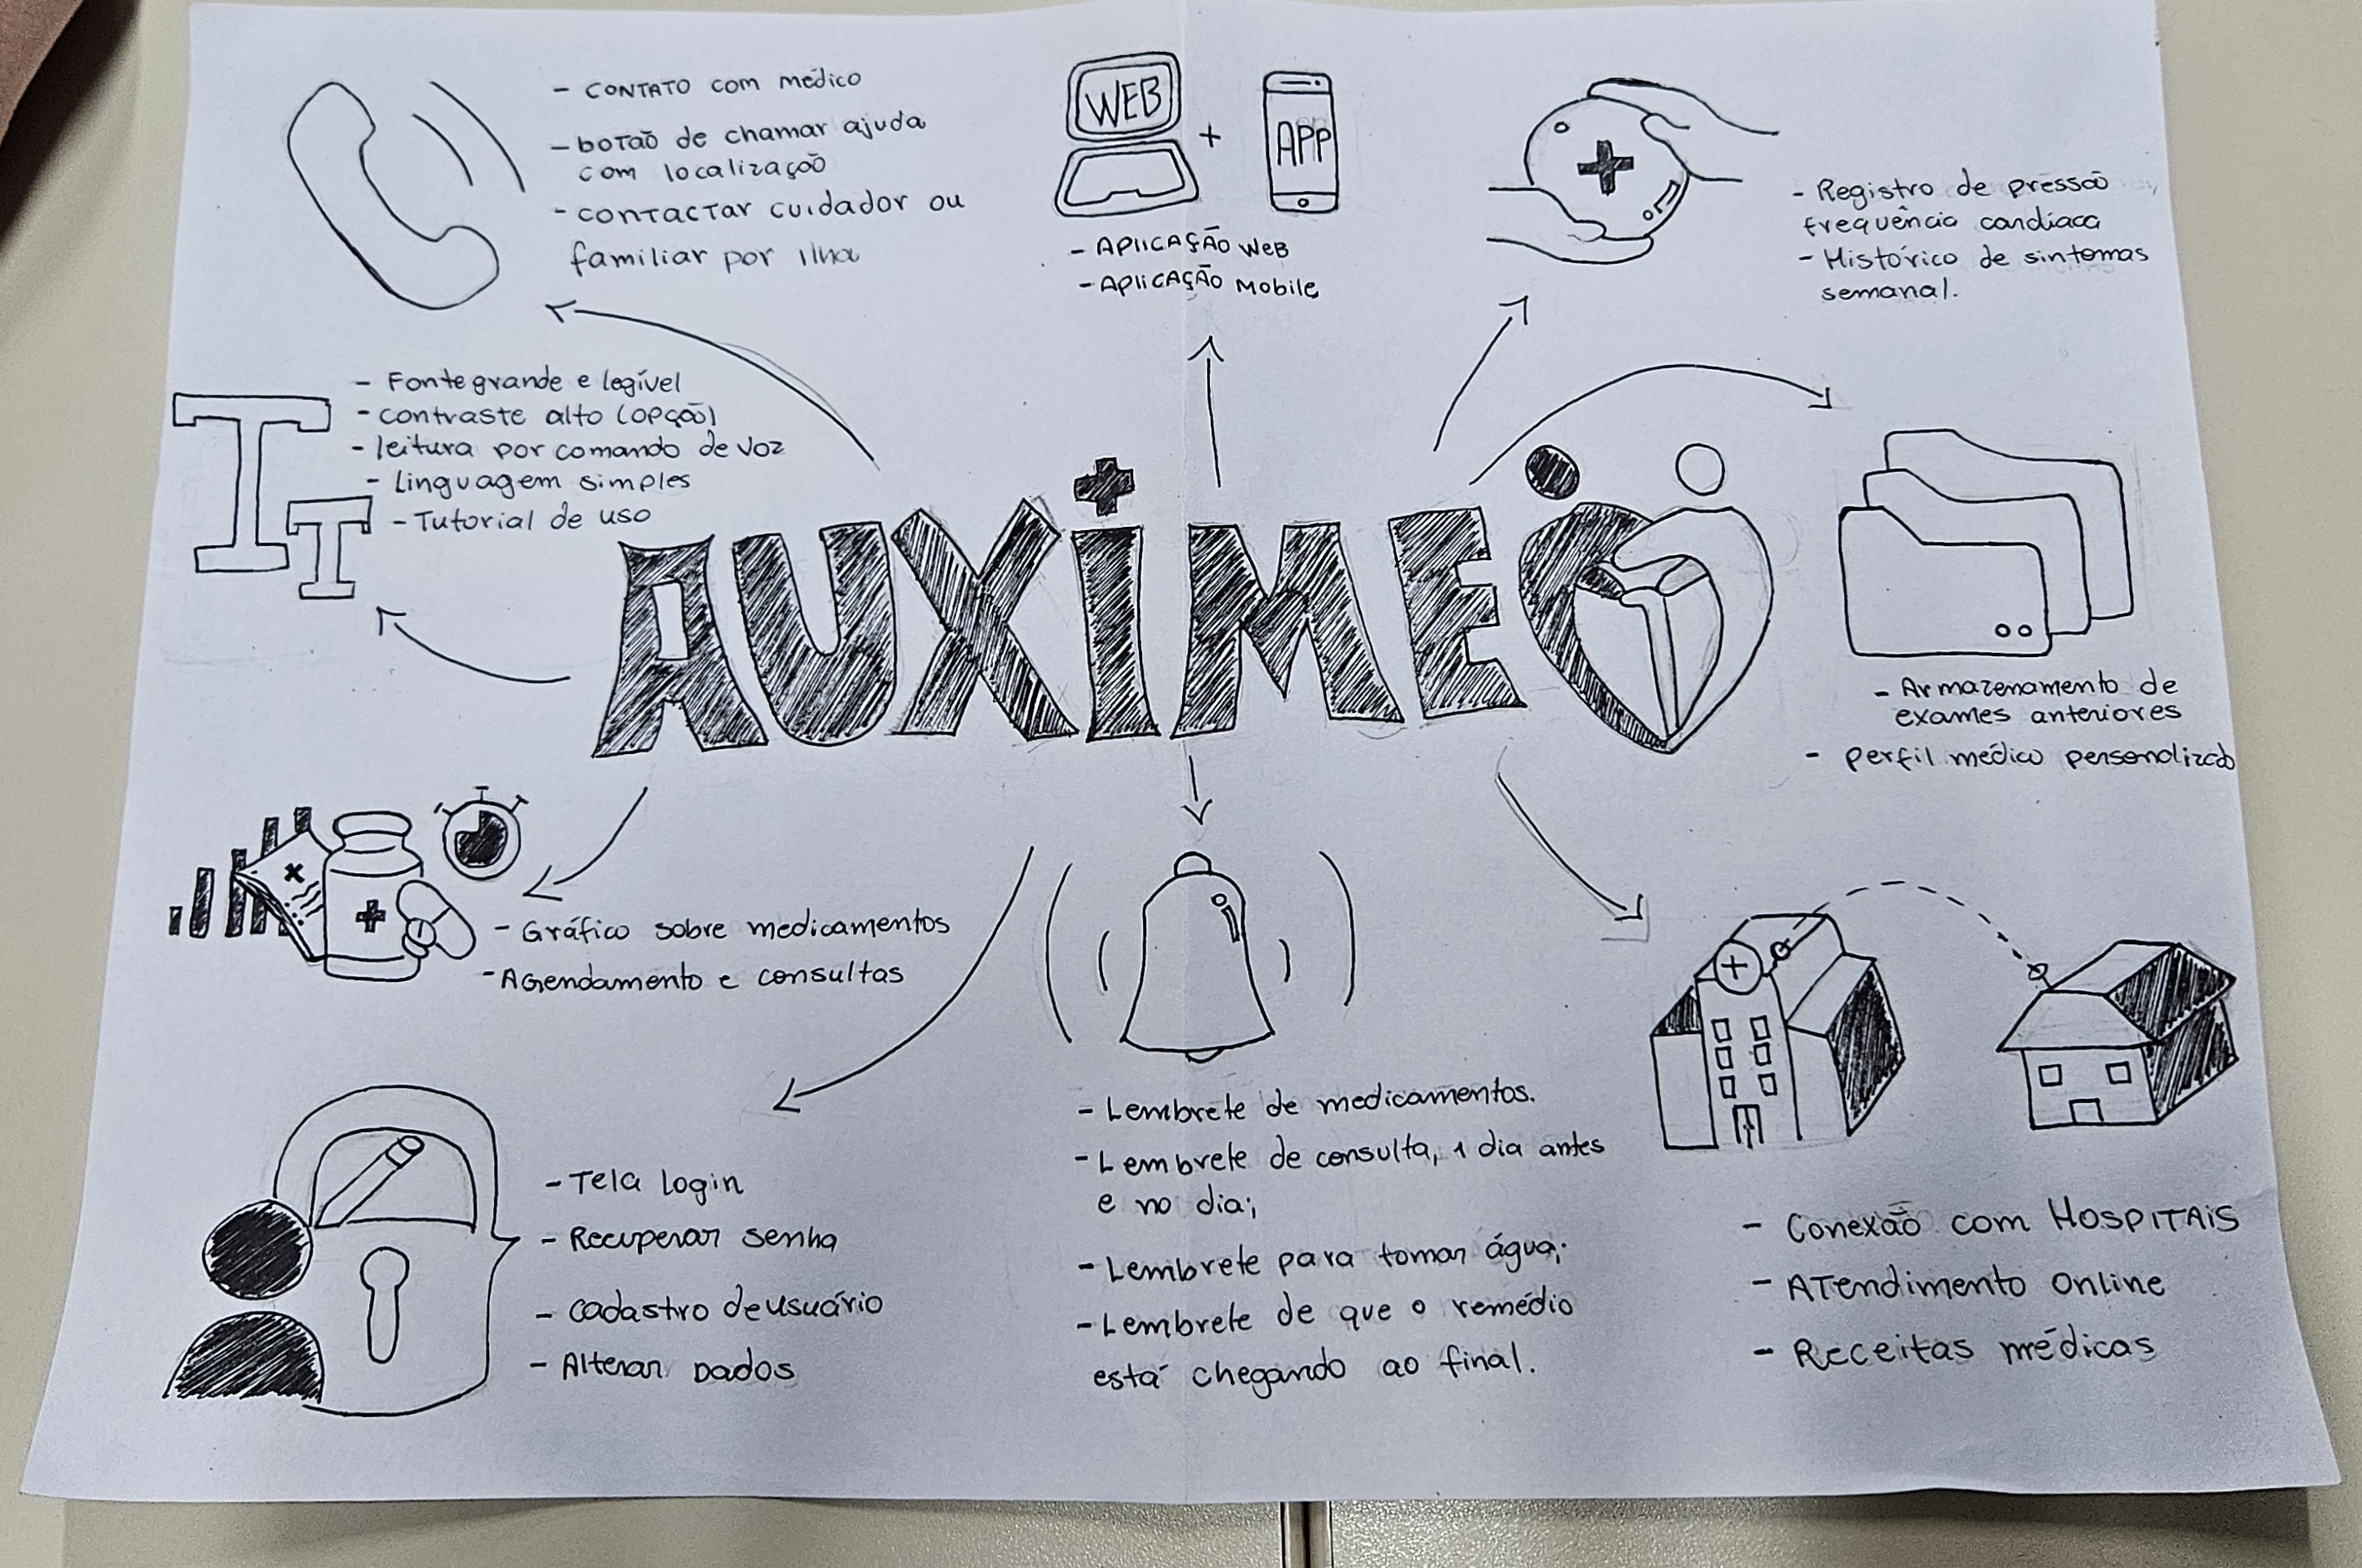 - CONTATO com médico
- botão de chamar ajuda
com localização
- contactar cuidador ou
familiar por
WEB
+
APP
- APLICAÇÃO WEB
- APLICAÇÃO Mobile
- Registro de pressão
frequência cardíaca
- Histórico de sintomas
semanal.
- Fonte grande e legível
- contraste alto (opção)
- leitura por comando de voz
- Linguagem simples
- Tutorial de uso
AUXIME
- Armazenamento de
exames anteriores
- perfil médico personalizado
- Gráfico sobre medicamentos
- Agendamento e consultas
- Tela login
- Recuperar senha
- Cadastro de usuário
- Alterar DADOS
- Lembrete de medicamentos.
- Lembrete de consulta, 1 dia antes
e no dia;
- Lembrete para tomar água;
- Lembrete de que o remédio
está chegando ao final.
- Conexão com HOSPITAIS
- ATendimento Online
- Receitas médicas